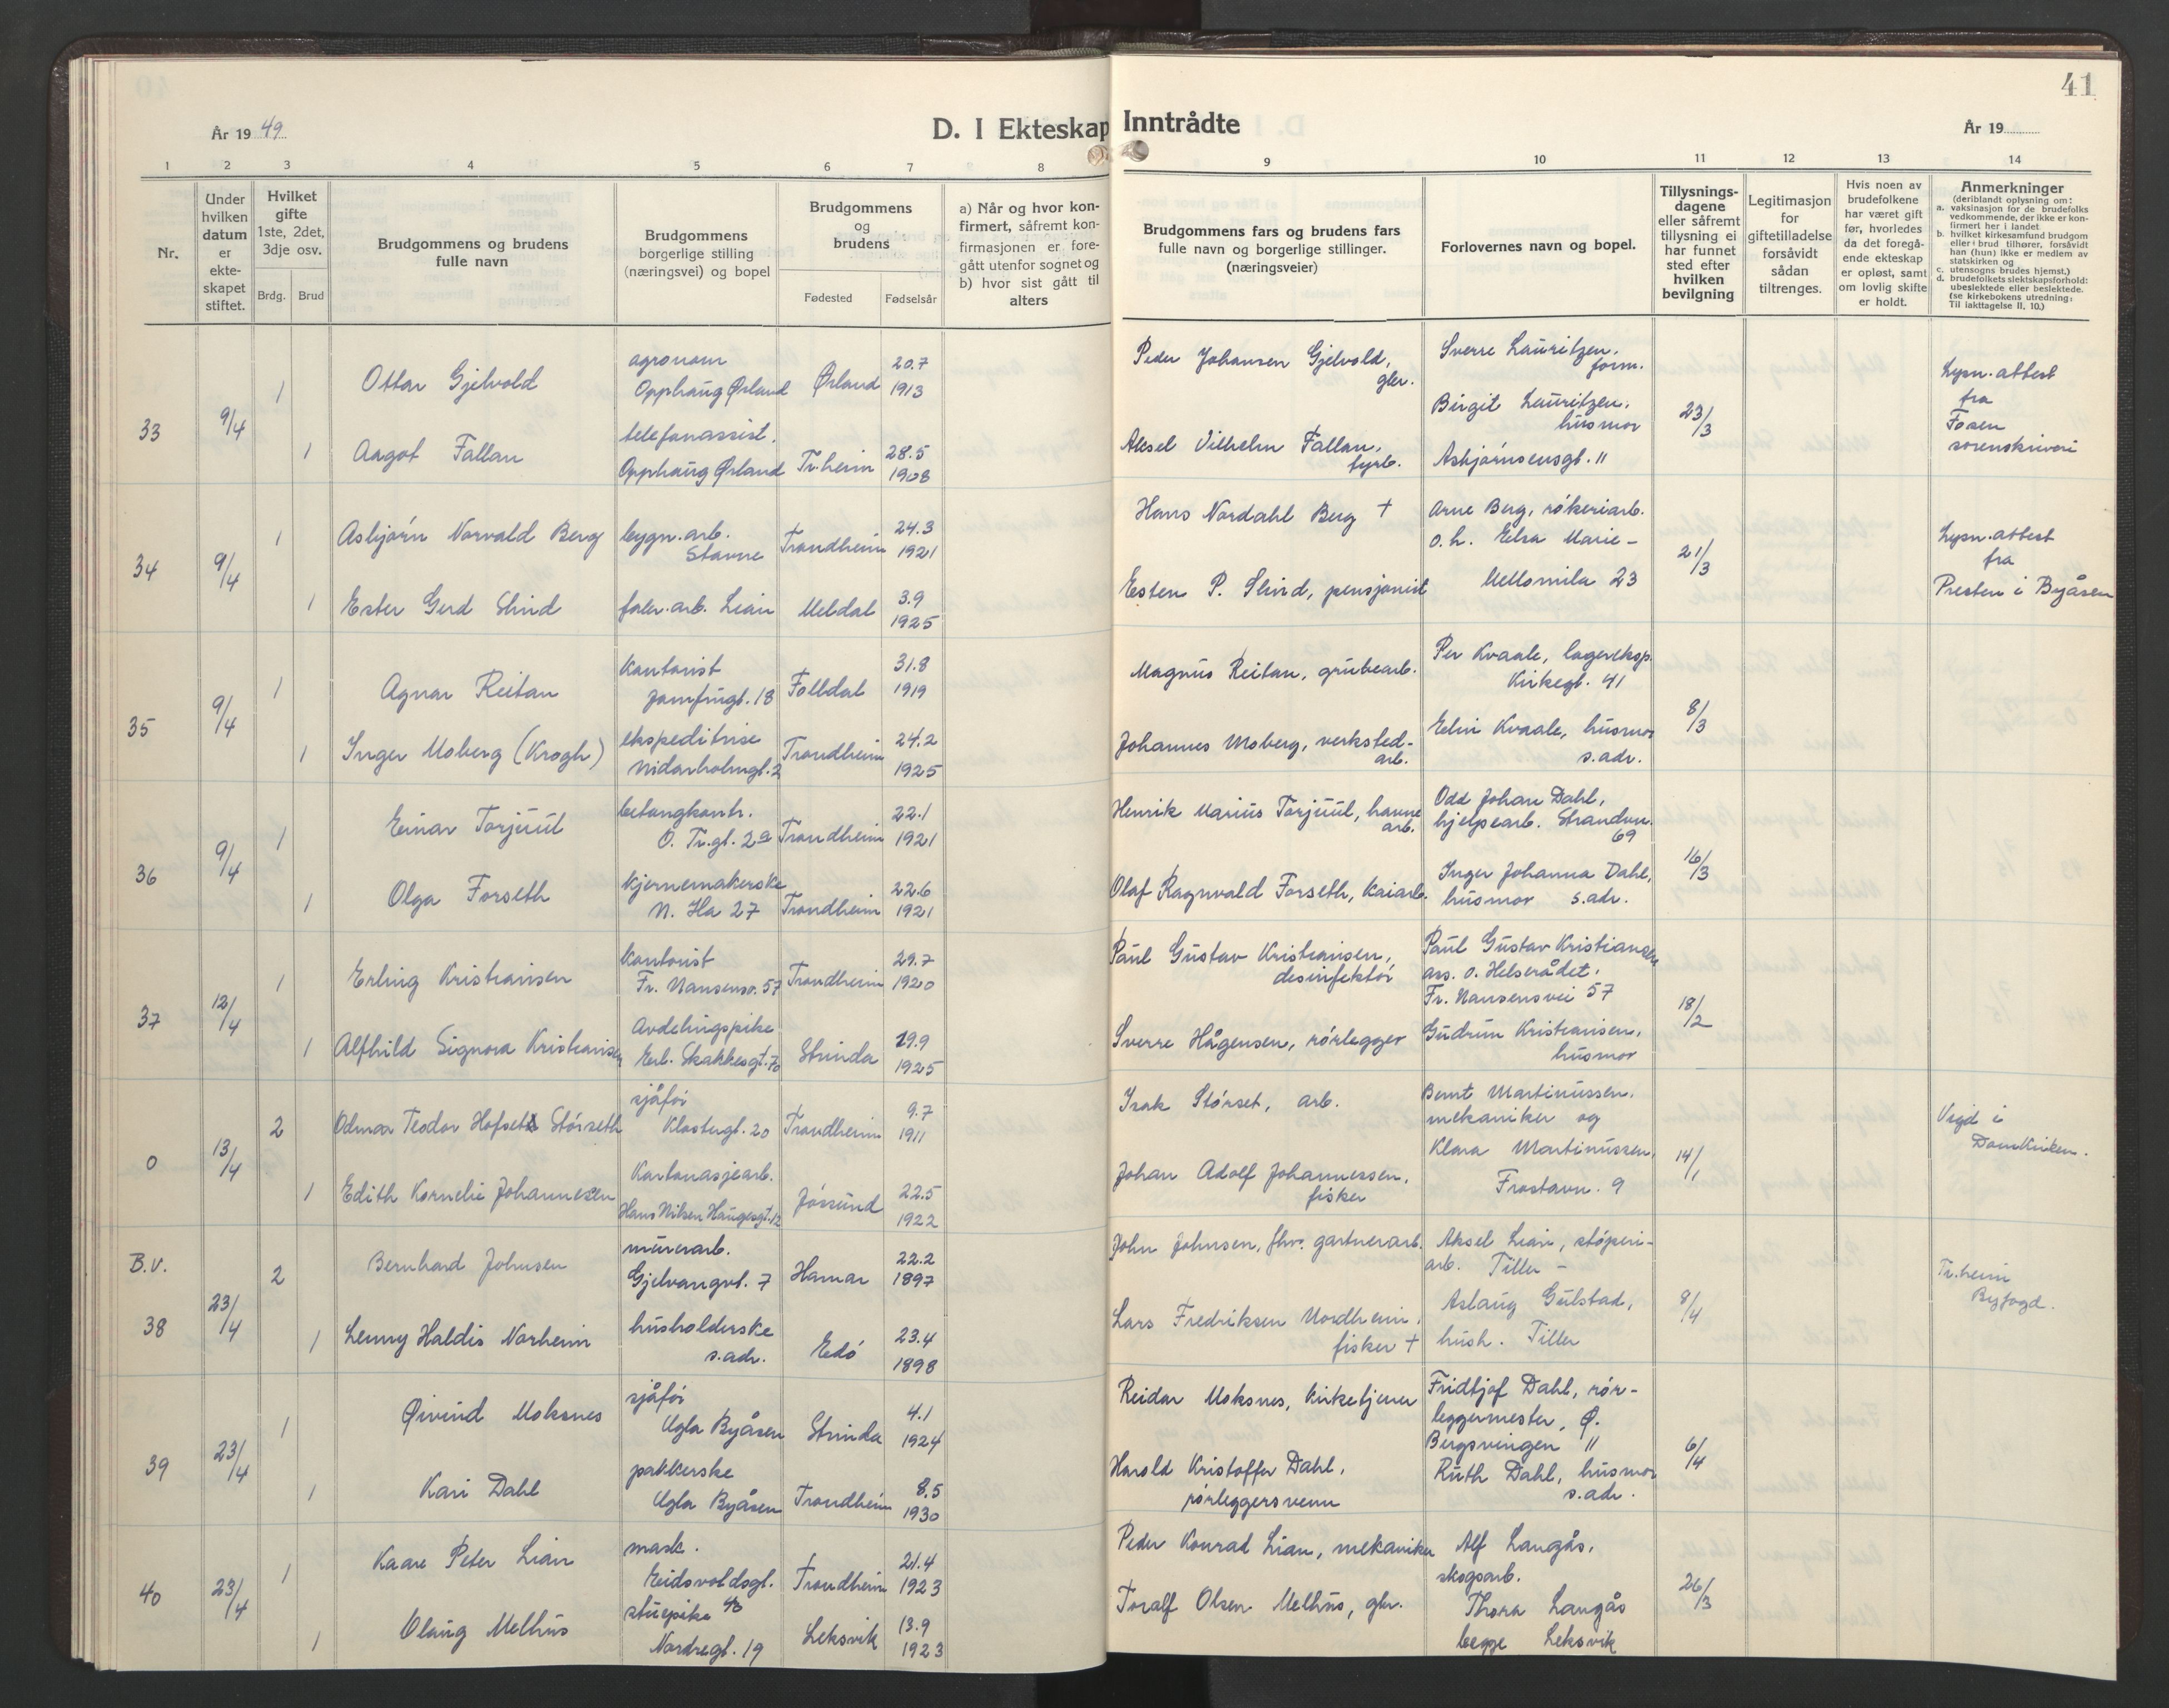 41
År 19 49
D. I Ekteskap Inntrådte
År 19
1 2 3 4 5 6 7 8 9 10 11 12 13 14
Nr.
Under hvilken datum er ekteskapet stiftet.
Hvilket gifte 1ste, 2det, 3dje osv.
Brdg. Brud
Brudgommens og brudens fulle navn
Brudgommens borgerlige stilling (næringsvei) og bopel
Brudgommens og brudens
Fødested Fødselsår
a) Når og hvor konfirmert, såfremt konfirmasjonen er foregått utenfor sognet og b) hvor sist gått til alters
Brudgommens fars og brudens fars fulle navn og borgerlige stillinger. (næringsveier)
Forlovernes navn og bopel.
Tillysningsdagene eller såfremt tillysning ei har funnet sted efter hvilken bevilgning
Legitimasjon for giftetilladelse forsåvidt sådan tiltrenges.
Hvis noen av brudefolkene har været gift før, hvorledes da det foregående ekteskap er opløst, samt om lovlig skifte er holdt.
Anmerkninger
(deriblandt oplysning om:
a. vaksinasjon for de brudefolks vedkommende, der ikke er konfirmert her i landet
b. hvilket kirkesamfund brudgom eller brud tilhører, forsåvidt han (hun) ikke er medlem av statskirken og
c. utensogns brudes hjemst.)
d. brudefolkets slektskapsforhold: ubeslektede eller beslektede.
(se kirkebokens utredning: Til iakttagelse II. 10.)
33 9/4
1 Ottar Gjelvold agronom Opphaug Ørland Ørland 20.7 1913
Peder Johansen Gjelvold, gbr.
Sverre Lauritzen, form.
Birgit Lauritzen, husmor
23/3
Lysn.attest fra Fosen sorenskriveri
1 Aagot Fallan telefonassist. Opphaug Ørland Tr.heim 28.5 1908
Aksel Vilhelm Fallan, fyrb.
Asbjørnsensgt. 11
34 9/4
1 Asbjørn Norvald Berg bygn.arb. Stavne Trondheim 24.3 1921
Hans Nordahl Berg †
Arne Berg, røkeriarb.
o.h. Elsa Marie -
21/3
Lysn.attest fra Presten i Byåsen
1 Ester Gerd Slind fabr.arb. Lian Meldal 3.9 1925
Esten P. Slind, pensjonist
Mellomila 23
35 9/4
1 Agnar Reitan Kontorist Jomfrugt. 18 Folldal 31.8 1919
Magnus Reitan, grubearb.
Per Kvaale, lagereksp. Kirkegt. 41
8/3
1 Inger Moberg (Krogh) ekspeditrise Nidarholmgt. 2 Trondheim 24.2 1925
Johannes Moberg, verksted-arb.
Edin Kvaale, husmor s.adr.
36 9/4
1 Einar Torjuul betongkontr. O. Tr.gt. 2a Trondheim 22.1 1921
Henrik Marius Torjuul, havnearb.
Odd Johan Dahl, hjelpearb. Strandvn. 69
16/3
1 Olga Forseth kjernemakerske N. Ila 27 Trondheim 22.6 1921
Olaf Ragnvald Forseth, Kaiarb.
Inger Johanna Dahl, husmor s.adr.
37 12/4
1 Erling Kristiansen Kontorist Fr. Nansensv. 57 Trondheim 29.7 1920
Paul Gustav Kristiansen, desinfektør
Paul Gustav Kristiansen ass. v. Helserådet, Fr. Nansensvei 57
18/2
1 Alfhild Signora Kristiansen Avdelingspike Erl. Skakkesgt. 70 Strinda 29.9 1925
Sverre Hågensen, rørlegger
Gudrun Kristiansen, husmor
0 13/4
2 Odmar Teodor Hofseth Størseth sjåfør Klostergt. 20 Trondheim 9.7 1911
Isak Størset, arb.
Bernt Martinussen, mekaniker og
14/1
Vigd i Domkirken.
1 Edith Kornelie Johannesen Kartonasjearb. Hans Nilsen Haugesgt. 12 Jøssund 22.5 1922
Johan Adolf Johannessen, fisker
Klara Martinussen, Frostavn. 9
B.V.
38 23/4
2 Bernhard Johnsen murerarb. Gjelvangvt. 7 Hamar 22.2 1897
John Johnsen, fhv. gartnerarb.
Aksel Lian, støperi-arb. Tiller -
8/4
Tr.heim Byfogd.
1 Lenny Haldis Norheim husholderske s.adr. Edø 23.4 1898
Lars Fredriksen Nordheim, fisker †
Aslaug Gulstad, hush. Tiller
39 23/4
1 Øivind Moksnes sjåfør Ugla Byåsen Strinda 4.1 1924
Reidar Moksnes, kirketjener
Fridtjof Dahl, rør-leggermester, Ø. Bergsvingen 11
6/4
1 Kari Dahl pakkerske Ugla Byåsen Trondheim 8.5 1930
Harald Kristoffer Dahl, rørleggersvenn
Ruth Dahl, husmor s.adr.
40 23/4
1 Kaare Peter Lian mask. Eidsvoldsgt. 40 Trondheim 21.4 1923
Peder Konrad Lian, mekaniker
Alf Langås, skogsarb.
26/3
1 Olaug Melhus stuepike Nordregt. 19 Leksvik 13.9 1923
Toralf Olsen Melhus, gbr.
Thora Langås begge Leksvik